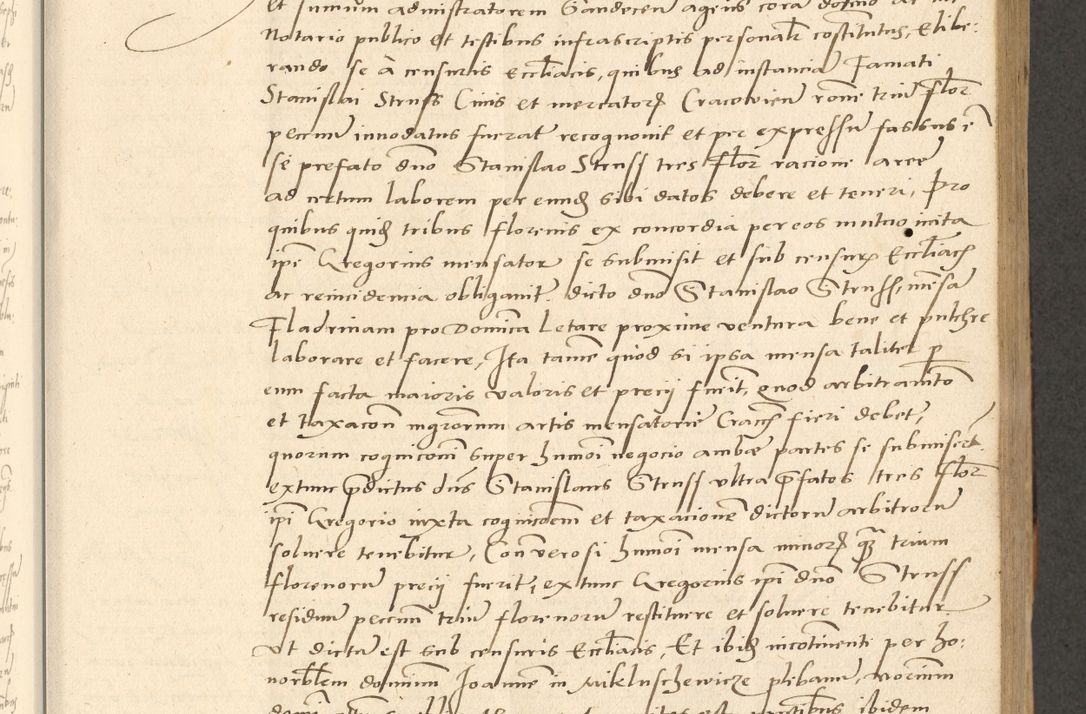 Et sumum admistratorem Gandecen̄ agens corā domino ac me
Notario publico et testibus infrascriptis personalr̄ costitutus, Elibe:
rando se à censuris Eccl̄iacis, quibus ad instanciā Famati
Stanislai Struss Ciuis et mercator Cracovien̄ rone triū flor̄
peccun̄ innodatus fuerat recognouit et per expressū fassus ē
se prefato dn̄o Stanislao Struss tres flor̄ racione arre
ad certum laborem per eundē sibi datos debere et teneri, Pro
quibus quidē tribus florenis ex concordia per eos mutuo inita
ipē Gregorius mensator se submisit et sub censuris Eccl̄iacis
ac reincidencia obligauit dicto dn̄o Stanislao Struss, mēsā
Fladrinam pro Domīca Letare proxime ventura bene et pulchre
laborare et facere, Ita tamē quod si ipsa mensa taliter p
eum facta maioris valoris et precij fuerit, quod arbitramto
et taxacōni mgrorum artis mensatorie Cracen̄ fieri debet,
quorum cognicōni super hmōi negocio ambæ partes se submisert̄
extunc p̄dictus dn̄s Stanislaus Struss vltra p̄fatos tres flor̄
ipi Gregorio iuxta cognicōem et taxacionē dictorū arbitrorū
soluere tenebitur, Con verosi hmōi mensa minor quā trium
florenorū precij fuerit, extunc Gregorius ipi dn̄o Struss
residuū peccun̄ triū florenorū restituere et soluere tenebitur
vt dictū est sub censuris Eccl̄iacis, Et ibidē incotinenti per ho:
norb̄lem dominum Joannē in Mikluschewicze plebanū, Vorinum